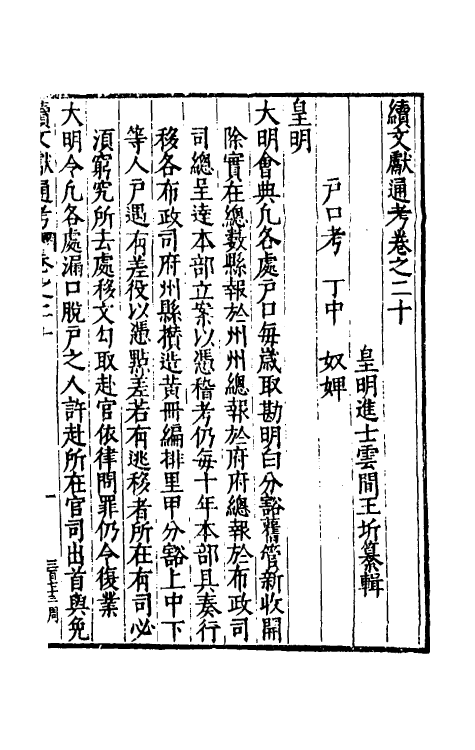 續文獻通考卷之二十
皇明進士雲間王圻纂輯
戶口考 丁中 奴婢
皇明
大明會典凡各處戶口每歲取勘明白分豁舊管新收開
除實在總數縣報於州州總報於府府總報於布政司
司總呈達本部立案以憑稽考仍每十年本部具奏行
移各布政司府州縣攢造黃冊編排里甲分豁上中下
等人戶遇有差役以憑點差若有逃移者所在有司必
湏窮究所去處移文勾取赴官依律問罪仍令復業
大明令凡各處漏口脫戶之人許赴所在官司出首與免
續文獻通考 卷之二十 一